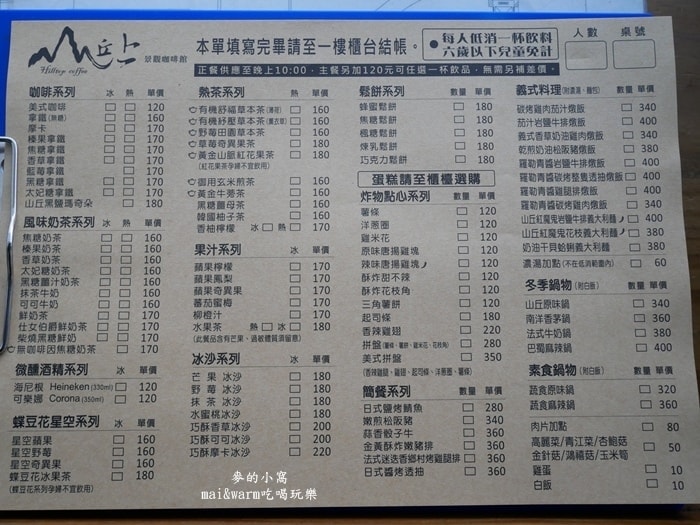 山丘上
景觀咖啡館
Hilltop coffee
本單填寫完畢請至一樓櫃台結帳。
每人低消一杯飲料
六歲以下兒童免計
人數 桌號
正餐供應至晚上10:00,主餐另加120元可任選一杯飲品,無需另補差價。
咖啡系列 冰 熱 單價
美式咖啡 120
拿鐵(無糖) 160
摩卡 170
榛果拿鐵 170
焦糖拿鐵 170
香草拿鐵 170
藍莓拿鐵 170
黑糖拿鐵 170
太妃糖拿鐵 170
山丘黑鹽瑪奇朵 180
風味奶茶系列 冰 熱 單價
焦糖奶茶 160
榛果奶茶 160
香草奶茶 160
太妃糖奶茶 160
黑糖薑汁奶茶 160
抹茶牛奶 160
可可牛奶 160
鮮奶茶 170
仕女伯爵鮮奶茶 170
柴燒黑糖鮮奶 170
無咖啡因焦糖奶茶 180
微醺酒精系列 單價
海尼根 Heineken(330ml) 120
可樂娜 Corona(350ml) 120
蝶豆花星空系列 單價
星空蘋果 160
星空野莓 160
星空奇異果 160
蝶豆花冰果茶 180
(蝶豆花系列孕婦不宜飲用)
熱茶系列 單價
有機舒福草本茶(薄荷) 160
有機紓壓草本茶(薰衣草) 160
野莓田園草本茶 160
草莓奇異果茶 180
黃金山脈紅花果茶 180
(紅花果茶孕婦不宜飲用)
御用玄米煎茶 160
黃金牛蒡茶 160
黑糖薑母茶 160
韓國柚子茶 160
香柚檸檬 冰 熱 160
果汁系列 單價
蘋果檸檬 170
蘋果鳳梨 170
蘋果奇異果 170
蕃茄蜜梅 170
柳橙汁 170
水果茶 熱 冰 180
(此餐品含有芒果、過敏體質須留意)
冰沙系列 單價
芒果冰沙 180
野莓冰沙 180
抹茶冰沙 180
水蜜桃冰沙 180
巧酥香草冰沙 200
巧酥可可冰沙 200
巧酥摩卡冰沙 220
鬆餅系列 數量 單價
蜂蜜鬆餅 180
焦糖鬆餅 180
楓糖鬆餅 180
煉乳鬆餅 180
巧克力鬆餅 180
蛋糕請至櫃檯選購
炸物點心系列 數量 單價
薯條 120
洋蔥圈 120
雞米花 120
原味唐揚雞塊 120
辣味唐揚雞塊 120
酥炸甜不辣 120
酥炸花枝角 120
三角薯餅 120
起司條 180
香辣雞翅 220
拼盤(薯條、薯餅、雞米花、花枝角) 280
美式拼盤 350
(香辣雞翅、雞翅、起司條、洋蔥圈、薯條)
簡餐系列 數量 單價
日式鹽烤鯖魚 280
嫩煎松阪豬 340
蒜香骰子牛 360
金黃酥炸嫩豬排 360
法式迷迭香鄉村烤雞腿排 360
日式醬烤透抽 360
義式料理(附濃湯、麵包) 數量 單價
碳烤雞肉茄汁燉飯 340
茄汁岩鹽牛排燉飯 400
義式香草奶油雞肉燉飯 340
乾煎奶油松阪豬燉飯 400
羅勒青醬岩鹽牛排燉飯 400
羅勒青醬碳烤整隻透抽燉飯 400
羅勒青醬雞腿排燉飯 400
羅勒青醬碳烤雞肉燉飯 340
山丘紅魔鬼岩鹽牛排義大利麵 400
山丘紅魔鬼花枝義大利麵 380
奶油干貝蛤蜊義大利麵 380
濃湯加點(不在低消範圍內) 60
冬季鍋物(附白飯) 數量 單價
山丘原味鍋 340
南洋香茅鍋 360
法式牛奶鍋 380
巴蜀麻辣鍋 380
素食鍋物(附白飯) 數量 單價
蔬食原味鍋 320
蔬食麻辣鍋 360
肉片加點 80
高麗菜/青江菜/杏鮑菇
金針菇/鴻禧菇/玉米筍 50
雞蛋 10
白飯 10
夢的小窩
mai&warm吃喝玩樂